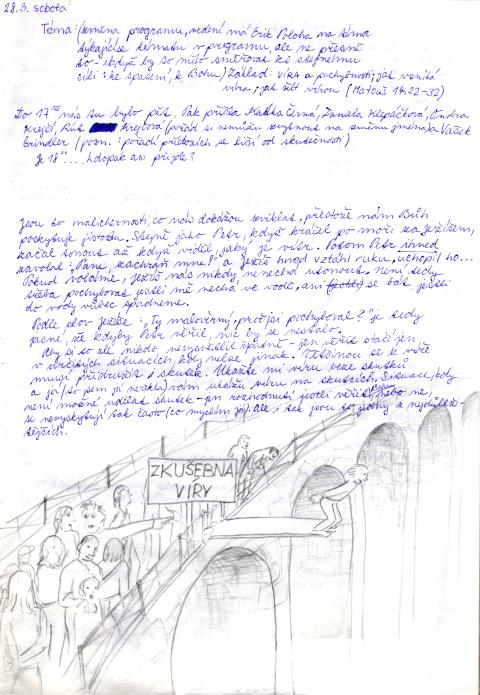 28.3. sobota
Téma: (změna programu, vedení má Erik Poloha na téma
týkající se tématu v programu, ale ne přesně
to - ikdyž by to mělo směřovat ke stejnému
cíli: ke spasení, k Bohu) Základ: víra a pochybnosti; jak vzniká
víra; jak žít vírou (Matouš 14:22-32)
Do 17 nás tu bylo pět. Pak přišla Katka Černá, Daniela Klepáčková, Ondra
Krejčí, Růt Krejčová (pořád si nemůžu zvyknout na změnu jména) a Vašek
Gründler (pozn.: pořadí příchozích se liší od skutečnosti)
Je 18 .... kdopak asi přijde?
Jsou to malichernosti, co nás dokážou zviklat, přestože nám Bůh
poskytuje jistotu. Stejně jako Petr, když kráčel po moři za Ježíšem,
začal tonout až když viděl, jaký je vítr. Potom Petr ihned
zavolal: "Pane, zachraň mne!" a Ježíš hned vztáhl ruku, uchopil ho...
Pokud voláme, Ježíš nás nikdy nenechá utonout. Není tedy
třeba pochybovat jestli mě nechá ve vodě, ani se bát jestli
do vody vůbec spadneme.
Podle slov Ježíše: "Ty malověrný, proč jsi pochyboval?" je tedy
jasné, že kdyby Petr věřil, nic by se nestalo.
Aby si to ale nikdo nevysvětlil špatně - jen věřit stačí jen
v určitých situacích, kdy nelze jinak. Většinou se k víře
musí přidružit i skutek. Ukažte mi víru beze skutků
a já (to jsem já neřekl) vám ukážu víru na skutcích. Situace, kdy
není možné udělat skutek - jen rozhodnutí jestli věřit nebo ne,
se nevyskytují tak často (co myslím já). Ale i tak jsou to jedny z nejdůleži-
tějších.
ZKUŠEBNA
VÍRY